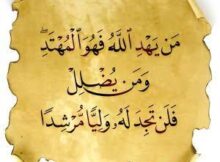 مَن يَهْدِ اللَّهُ فَهُوَ الْمُهْتَدِ ۖ
وَمَن يُضْلِلْ
فَلَن تَجِدَ لَهُ وَلِيًّا مُّرْشِدًا